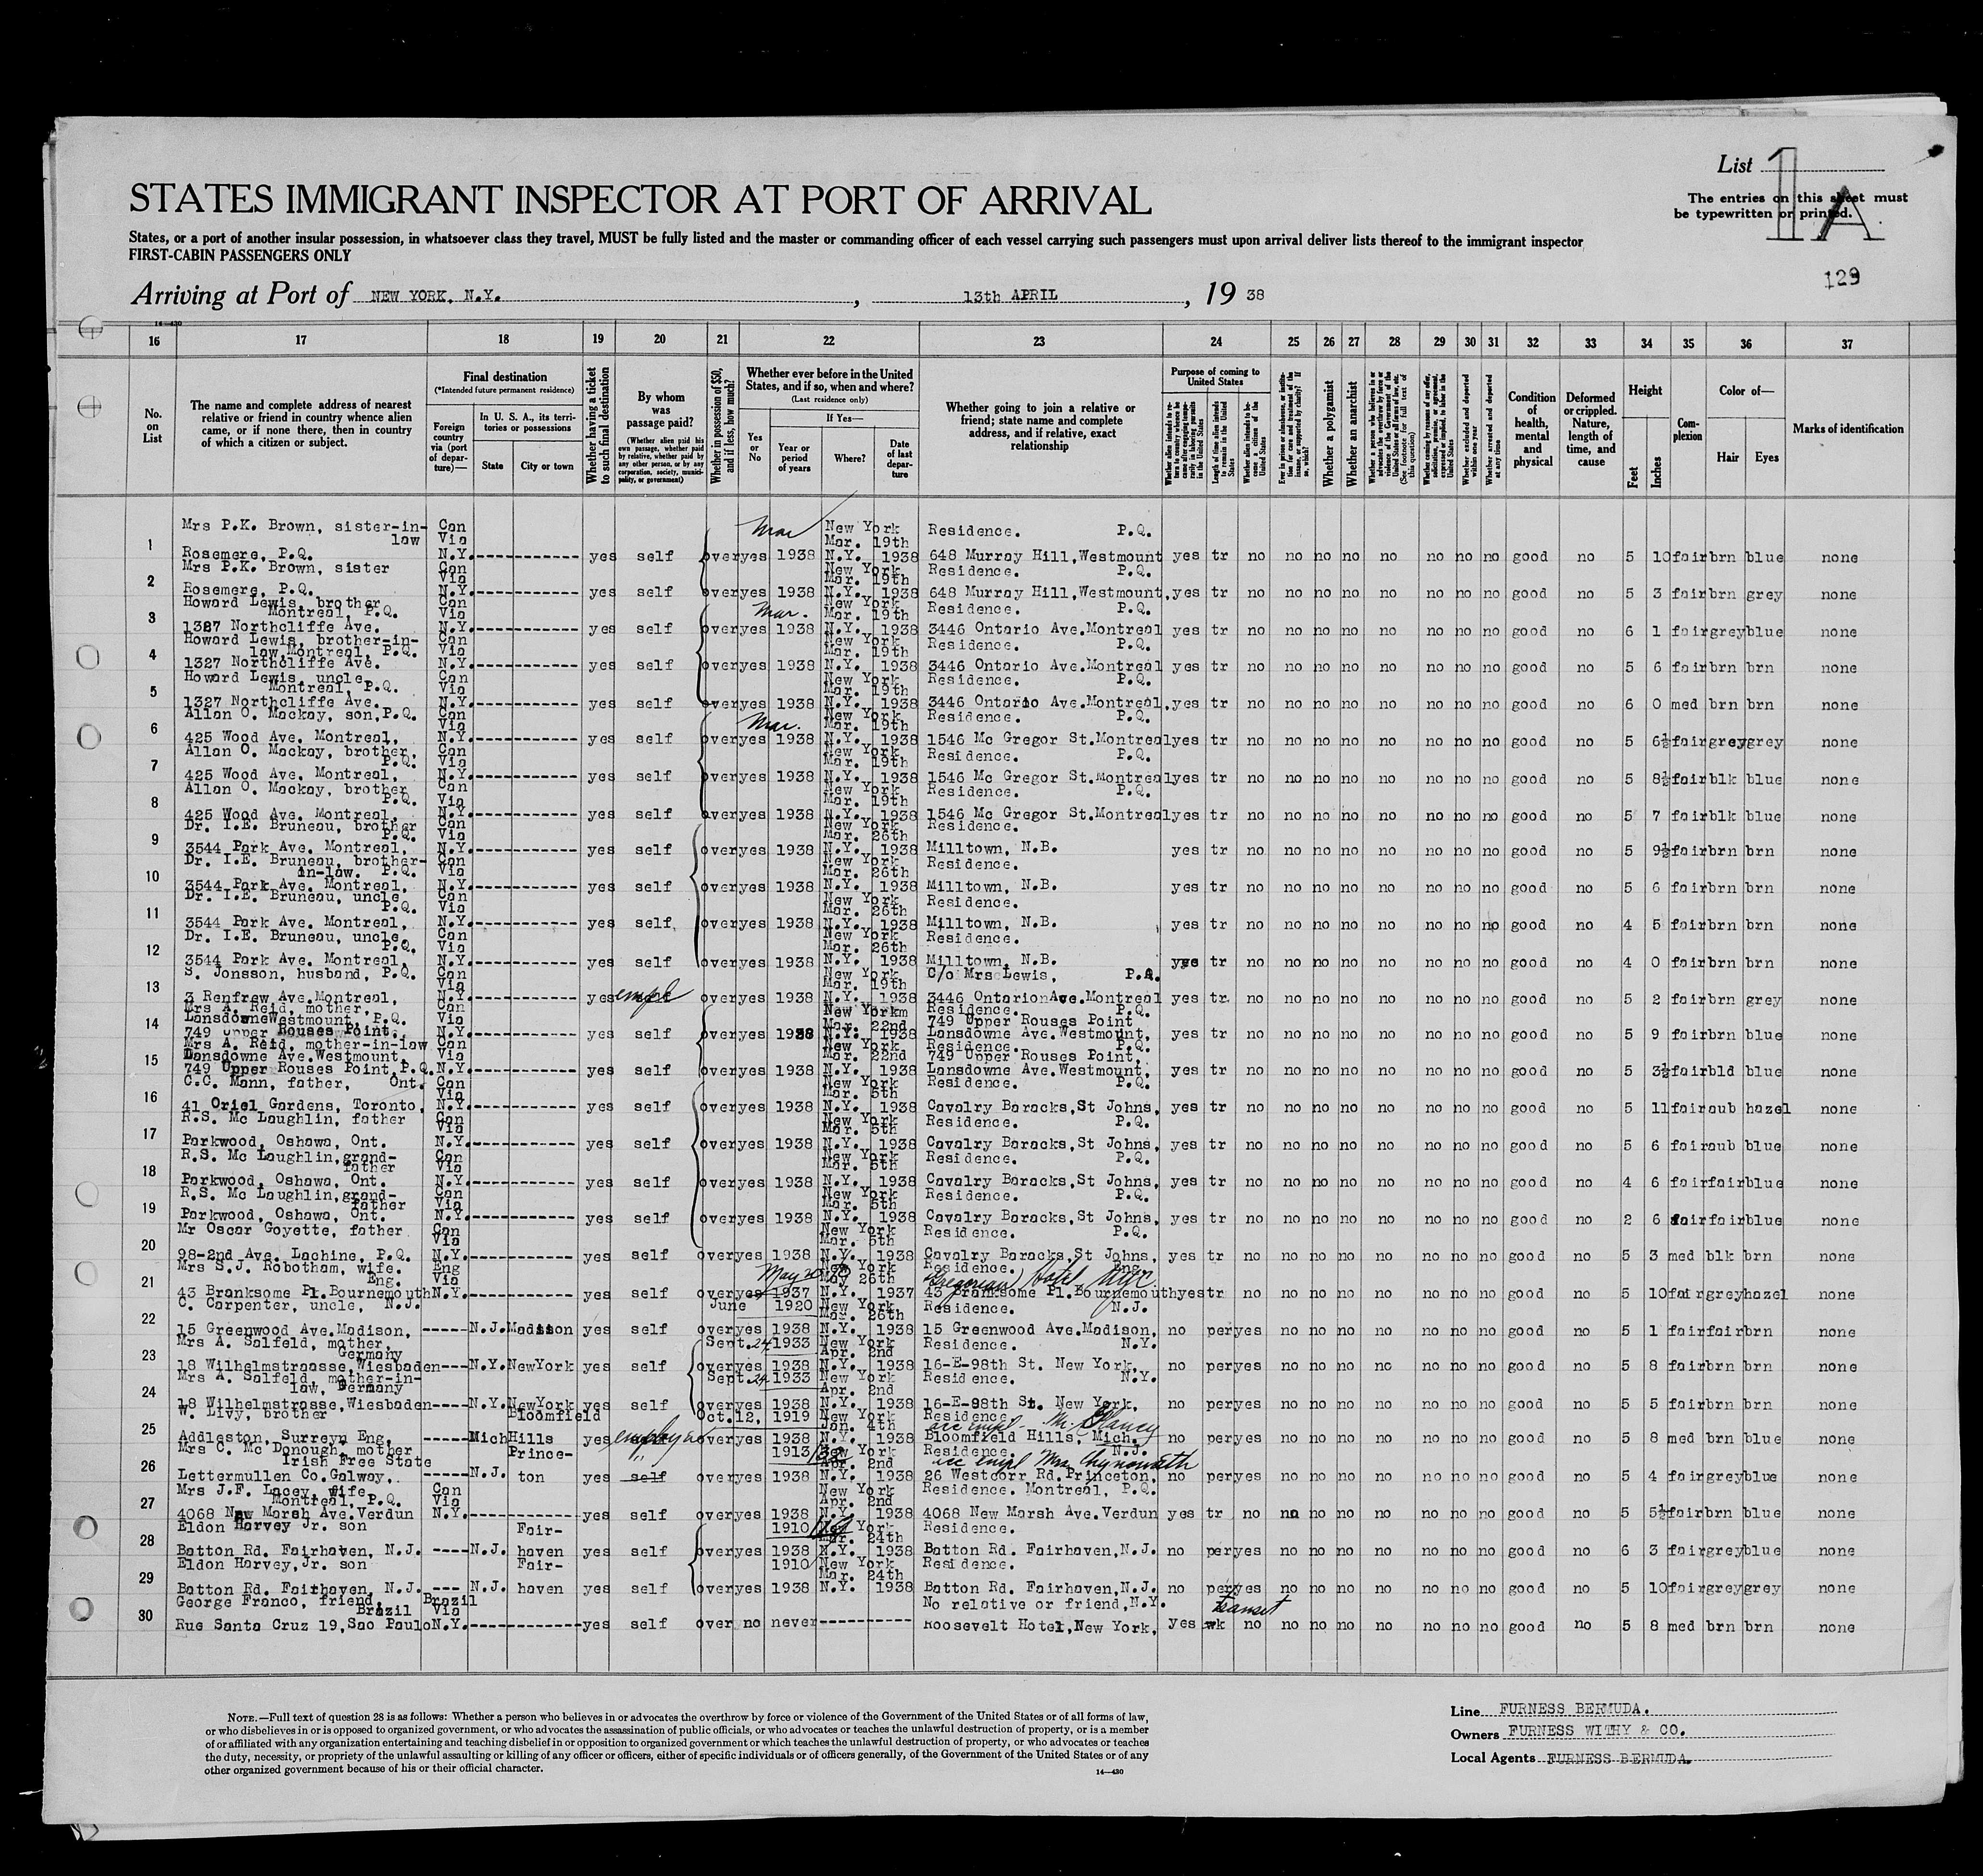 List 1A
STATES IMMIGRANT INSPECTOR AT PORT OF ARRIVAL
The entries on this sheet must
be typewritten or printed.
States, or a port of another insular possession, in whatsoever class they travel, MUST be fully listed and the master or commanding officer of each vessel carrying such passengers must upon arrival deliver lists thereof to the immigrant inspector
FIRST-CABIN PASSENGERS ONLY
129
Arriving at Port of NEW YORK, N.Y. , 13th APRIL , 19 38
14—430
16 17 18 19 20 21 22 23 24 25 26 27 28 29 30 31 32 33 34 35 36 37
No. on List
The name and complete address of nearest relative or friend in country whence alien came, or if none there, then in country of which a citizen or subject.
Final destination
(*Intended future permanent residence)
Foreign country via (port of departure)—
In U. S. A., its territories or possessions
State
City or town
Whether having a ticket to such final destination
By whom was passage paid?
(Whether alien paid his own passage, whether paid by relative, whether paid by any other person, or by any corporation, society, municipality, or government)
Whether in possession of $50, and if less, how much?
Whether ever before in the United States, and if so, when and where?
(Last residence only)
Yes or No
If Yes—
Year or period of years
Where?
Date of last departure
Whether going to join a relative or friend; state name and complete address, and if relative, exact relationship
Purpose of coming to United States
Length of time alien intends to remain in the United States
Whether alien intends to become a citizen of the United States
Whether a polygamist
Whether an anarchist
Whether excluded and deported within one year
Whether arrested and deported at any time
Condition of health, mental and physical
Deformed or crippled. Nature, length of time, and cause
Height
Feet
Inches
Complexion
Color of—
Hair
Eyes
Marks of identification
1 Mrs P.K. Brown, sister-in-law Rosemere, P.Q. Can Via N.Y. yes self over yes Mar 1938 New York N.Y. Mar. 19th 1938 Residence. P.Q. 648 Murray Hill,Westmount yes tr no no no no no no no no good no 5 10 fair brn blue none
2 Mrs P.K. Brown, sister Rosemere, P.Q. Can Via N.Y. yes self over yes 1938 New York N.Y. Mar. 19th 1938 Residence. P.Q. 648 Murray Hill,Westmount, yes tr no no no no no no no no good no 5 3 fair brn grey none
3 Howard Lewis, brother Montreal, P.Q. 1327 Northcliffe Ave. Can Via N.Y. yes self over yes Mar. 1938 New York N.Y. Mar. 19th 1938 Residence. P.Q. 3446 Ontario Ave.Montreal yes tr no no no no no no no no good no 6 1 fair grey blue none
4 Howard Lewis, brother-in-law,Montreal, P.Q. 1327 Northcliffe Ave. Can Via N.Y. yes self over yes 1938 New York N.Y. Mar. 19th 1938 Residence. P.Q. 3446 Ontario Ave.Montreal yes tr no no no no no no no no good no 5 6 fair brn brn none
5 Howard Lewis, uncle Montreal, P.Q. 1327 Northcliffe Ave. Can Via N.Y. yes self over yes 1938 New York N.Y. Mar. 19th 1938 Residence. P.Q. 3446 Ontario Ave.Montreal, yes tr no no no no no no no no good no 6 0 med brn brn none
6 Allan O. Mackay, son,P.Q. 425 Wood Ave. Montreal, Can Via N.Y. yes self over yes Mar. 1938 New York N.Y. Mar. 19th 1938 Residence. P.Q. 1546 Mc Gregor St.Montreal yes tr no no no no no no no no good no 5 6½ fair grey grey none
7 Allan O. Mackay, brother, P.Q. 425 Wood Ave. Montreal, Can Via N.Y. yes self over yes 1938 New York N.Y. Mar. 19th 1938 Residence. P.Q. 1546 Mc Gregor St.Montreal yes tr no no no no no no no no good no 5 8½ fair blk blue none
8 Allan O. Mackay, brother P.Q. 425 Wood Ave. Montreal, Can Via N.Y. yes self over yes 1938 New York N.Y. Mar. 19th 1938 Residence. P.Q. 1546 Mc Gregor St.Montreal yes tr no no no no no no no no good no 5 7 fair blk blue none
9 Dr. I.E. Bruneau, brother P.Q. 3544 Park Ave. Montreal, Can Via N.Y. yes self over yes 1938 New York N.Y. Mar. 26th 1938 Residence. Milltown, N.B. yes tr no no no no no no no no good no 5 9½ fair brn brn none
10 Dr. I.E. Bruneau, brother-in-law. P.Q. 3544 Park Ave. Montreal, Can Via N.Y. yes self over yes 1938 New York N.Y. Mar. 26th 1938 Residence. Milltown, N.B. yes tr no no no no no no no no good no 5 6 fair brn brn none
11 Dr. I.E. Bruneau, uncle P.Q. 3544 Park Ave. Montreal, Can Via N.Y. yes self over yes 1938 New York N.Y. Mar. 26th 1938 Residence. Milltown, N.B. yes tr no no no no no no no no good no 4 5 fair brn brn none
12 Dr. I.E. Bruneau, uncle, P.Q. 3544 Park Ave. Montreal, Can Via N.Y. yes self over yes 1938 New York N.Y. Mar. 26th 1938 Residence. Milltown, N.B. yes tr no no no no no no no no good no 4 0 fair brn brn none
13 S. Jonsson, husband, P.Q. 3 Renfrew Ave.Montreal, Can Via N.Y. yes empl over yes 1938 New York N.Y. Mar. 19th 1938 C/o Mrs Lewis, P.Q. 3446 Ontario Ave.Montreal yes tr. no no no no no no no no good no 5 2 fair brn grey none
14 Mrs A. Reid, mother, Lansdowne Westmount, P.Q. 749 Upper Rouses Point, Can Via N.Y. yes self over yes 1938 New York N.Y. Mar. 22nd 1938 Residence. P.Q. 749 Upper Rouses Point Lansdowne Ave.Westmount, yes tr no no no no no no no no good no 5 9 fair brn blue none
15 Mrs A. Reid, mother-in-law Lansdowne Ave.Westmount, 749 Upper Rouses Point,P.Q. Can Via N.Y. yes self over yes 1938 New York N.Y. Mar. 22nd 1938 Residence. P.Q. 749 Upper Rouses Point, Lansdowne Ave.Westmount, yes tr no no no no no no no no good no 5 3½ fair bld blue none
16 C.C. Mann, father, Ont. 41 Oriel Gardens, Toronto, Can Via N.Y. yes self over yes 1938 New York N.Y. Mar. 5th 1938 Residence. P.Q. Cavalry Baracks,St Johns, yes tr no no no no no no no no good no 5 11 fair aub hazel none
17 R.S. Mc Laughlin, father Parkwood, Oshawa, Ont. Can Via N.Y. yes self over yes 1938 New York N.Y. Mar. 5th 1938 Residence. P.Q. Cavalry Baracks,St Johns, yes tr no no no no no no no no good no 5 6 fair aub blue none
18 R.S. Mc Laughlin,grand-father Parkwood, Oshawa, Ont. Can Via N.Y. yes self over yes 1938 New York N.Y. Mar. 5th 1938 Residence. P.Q. Cavalry Baracks,St Johns, yes tr no no no no no no no no good no 4 6 fair fair blue none
19 R.S. Mc Laughlin,grand-father Parkwood, Oshawa, Ont. Can Via N.Y. yes self over yes 1938 New York N.Y. Mar. 5th 1938 Residence. P.Q. Cavalry Baracks,St Johns, yes tr no no no no no no no no good no 2 6 fair fair blue none
20 Mr Oscar Goyette, father 98-2nd Ave. Lachine, P.Q. Can Via N.Y. yes self over yes 1938 New York N.Y. Mar. 5th 1938 Residence. P.Q. Cavalry Baracks,St Johns, yes tr no no no no no no no no good no 5 3 med blk brn none
21 Mrs S.J. Robotham, wife. Eng. 43 Branksome Pl.Bournemouth Eng Via N.Y. yes self over yes 1937 N.Y. May 26th 1937 Residence. Eng. Hotel 43 Branksome Pl.Bournemouth yes tr no no no no no no no no good no 5 10 fair grey hazel none
22 C. Carpenter, uncle, N.J. 15 Greenwood Ave.Madison, N.J. Madison yes self over yes June 1920 1938 New York N.Y. Mar. 26th 1938 Residence. N.J. 15 Greenwood Ave.Madison, no per yes no no no no no no no good no 5 1 fair fair brn none
23 Mrs A. Salfeld, mother, Germany 18 Wilhelmstraasse,Wiesbaden N.Y. NewYork yes self over yes Sept. 24 1933 1938 New York N.Y. Apr. 2nd 1938 Residence. N.Y. 16-E-98th St. New York, no per yes no no no no no no no good no 5 8 fair brn brn none
24 Mrs A. Salfeld, mother-in-law, Germany 18 Wilhelmstrasse,Wiesbaden N.Y. NewYork yes self over yes Sept. 24 1933 1938 New York N.Y. Apr. 2nd 1938 Residence. N.Y. 16-E-98th St. New York, no per yes no no no no no no no good no 5 5 fair brn brn none
25 W. Livy, brother Addleston, Surreyn Eng. Mich Bloomfield Hills yes over yes Oct.12, 1919 1938 New York N.Y. Jan. 4th 1938 Residence acc empl - Mr. Bloomfield Hills, Mich. no per yes no no no no no no no good no 5 8 med brn blue none
26 Mrs C. Mc Donough, mother Irish Free State Lettermullen Co.Galway, N.J. Prince-ton yes self over yes 1913 1938 New York N.Y. Apr. 2nd 1938 Residence. N.J. acc empl Mrs. 26 Westcorr Rd.Princeton, no per yes no no no no no no no good no 5 4 fair grey blue none
27 Mrs J.F. Lacey, wife Montreal, P.Q. 4068 New Marsh Ave.Verdun Can Via N.Y. yes self over yes 1938 New York N.Y. Apr. 2nd 1938 Residence. Montreal, P.Q. 4068 New Marsh Ave.Verdun yes tr no no no no no no no no good no 5 5½ fair brn blue none
28 Eldon Harvey Jr. son Batton Rd. Fairhaven, N.J. N.J. Fair-haven yes self over yes 1910 1938 New York N.Y. Mar. 24th 1938 Residence. Batton Rd. Fairhaven,N.J. no per yes no no no no no no no good no 6 3 fair grey blue none
29 Eldon Harvey,Jr. son Batton Rd. Fairhaven, N.J. N.J. Fair-haven yes self over yes 1910 1938 New York N.Y. Mar. 24th 1938 Residence. Batton Rd. Fairhaven,N.J. no per yes no no no no no no no good no 5 10 fair grey grey none
30 George Franco, friend, Brazil Rue Santa Cruz 19,Sao Paulo Brazil Via N.Y. yes self over no never No relative or friend,N.Y. Roosevelt Hotel,New York, yes wk transit no no no no no no no no good no 5 8 med brn brn none
NOTE.—Full text of question 28 is as follows: Whether a person who believes in or advocates the overthrow by force or violence of the Government of the United States or of all forms of law,
or who disbelieves in or is opposed to organized government, or who advocates the assassination of public officials, or who advocates or teaches the unlawful destruction of property, or is a member
of or affiliated with any organization entertaining and teaching disbelief in or opposition to organized government or which teaches the unlawful destruction of property, or who advocates or teaches
the duty, necessity, or propriety of the unlawful assaulting or killing of any officer or officers, either of specific individuals or of officers generally, of the Government of the United States or of any
other organized government because of his or their official character.
14—430
Line FURNESS BERMUDA.
Owners FURNESS WITHY & CO.
Local Agents FURNESS BERMUDA.